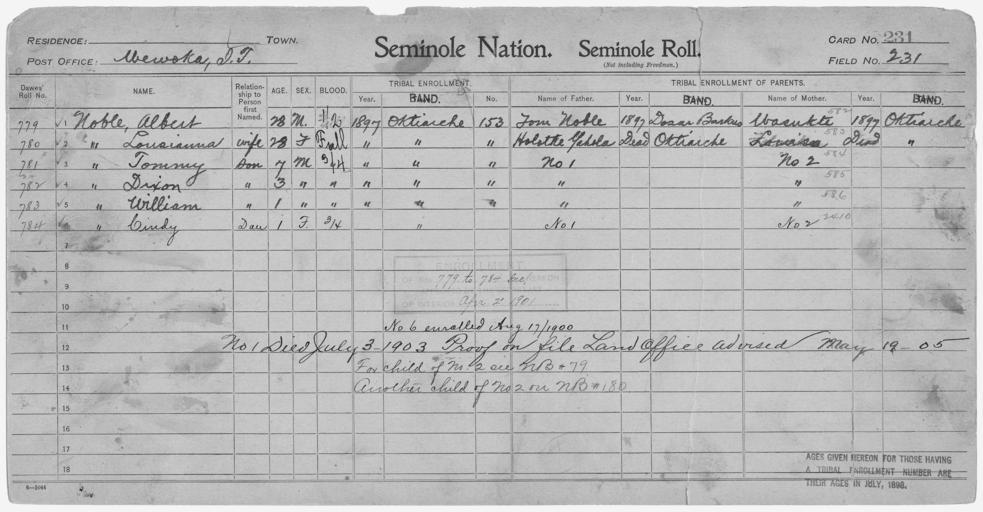 RESIDENCE: TOWN.
POST OFFICE: Wewoka, I.T.
Seminole Nation. Seminole Roll.
(Not including Freedmen.)
CARD NO. 231
FIELD NO. 231
Dawes' Roll No. NAME. Relationship to Person first Named. AGE. SEX. BLOOD. TRIBAL ENROLLMENT. Year. BAND. No. TRIBAL ENROLLMENT OF PARENTS. Name of Father. Year. BAND. Name of Mother. Year. BAND.
779 1 Noble, Albert 28 M. 1/2 1897 Oktiarche 153 Tom Noble 1897 Dosar Barkus Wasukte 582 1897 Oktiarche
780 2 " Lousianna wife 28 F Full " " " Holotte Dead Oktiarche 583 Dead "
781 3 " Tommy Son 7 M 3/4 " " " No 1 No 2 584
782 4 " Dixon " 3 " " " " " " " 585
783 5 " William " 1 " " " " " " " 586
784 6 " Cindy Dau 1 F. 3/4 " No 1 No 2 2410
7
8 ENROLLMENT
9 OF NOS. 779 to 784 HEREON
10 OF INTERIOR Apr 2 1901
11 No 6 enrolled Aug 17/1900
12 No 1 Died July 3-1903 Proof on file Land Office advised May 19-05
13 For child of No 2 see NB #79
14 Another child of No 2 on NB #180
15
16
17
18
AGES GIVEN HEREON FOR THOSE HAVING
A TRIBAL ENROLLMENT NUMBER ARE
THEIR AGES IN JULY, 1898.